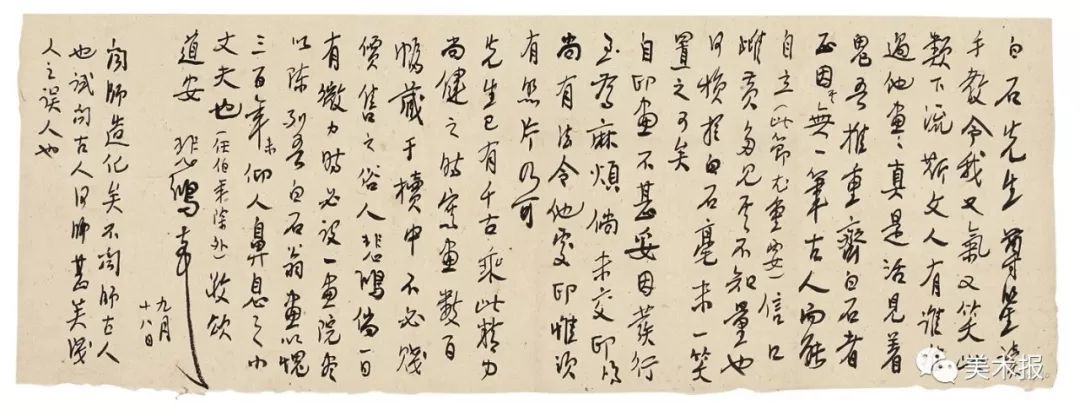 白石先生尊鉴读
手教令我又氣又笑此
類下流斯文人有誰
過他畫畫真是活見着
鬼吾推重齊白石者
正因無一筆古人而能
自立（此節尤重要）信口
雌黄多見其不知量也
何損於白石毫末一笑
置之可矣
自印畫不甚妥因發行
至為麻煩倘未交印鴻
尚有法令他處印惟須
有照片乃可
先生已有千古乘此精力
尚健之時寫畫數百
幅藏于櫝中不必賤
價售之俗人悲鴻倘一日
有微力時必設一畫院盡
以陳列吾白石翁畫以愧
三百年来仰人鼻息之小
丈夫也（任伯年除外）敬頌
道安 悲鴻
九月
十八日
聞師造化矣不聞師古人
也試問古人何師甚矣淺
人之誤人也
美术报